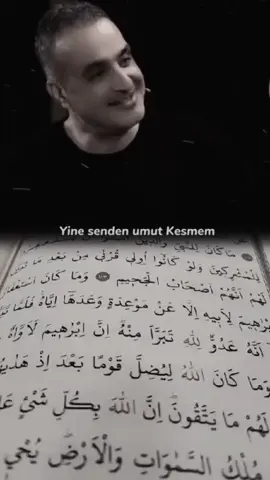 Yine senden umut Kesmem
مَا كَانَ لِلنَّبِيِّ وَالَّذِينَ
لِلْمُشْرِكِينَ وَلَوْ كَانُوا أُولِي قُرْبَى مِنْ بَعْدِ مَا
لَهُمْ أَنَّهُمْ أَصْحَابُ الْجَحِيمِ ﴿١١٣﴾ وَمَا كَانَ اسْتِغْفَا
إِبْرٰهِيمَ لِأَبِيهِ إِلَّا عَنْ مَوْعِدَةٍ وَعَدَهَا إِيَّاهُ فَلَمَّا
أَنَّهُ عَدُوٌّ لِلّٰهِ تَبَرَّأَ مِنْهُ إِنَّ إِبْرٰهِيمَ لَأَوَّاهٌ
وَمَا كَانَ اللّٰهُ لِيُضِلَّ قَوْمًا بَعْدَ إِذْ هَدٰيهُمْ
لَهُمْ مَا يَتَّقُونَ إِنَّ اللّٰهَ بِكُلِّ شَيْءٍ
مُلْكُ السَّمٰوَاتِ وَالْأَرْضِ يُحْيِي